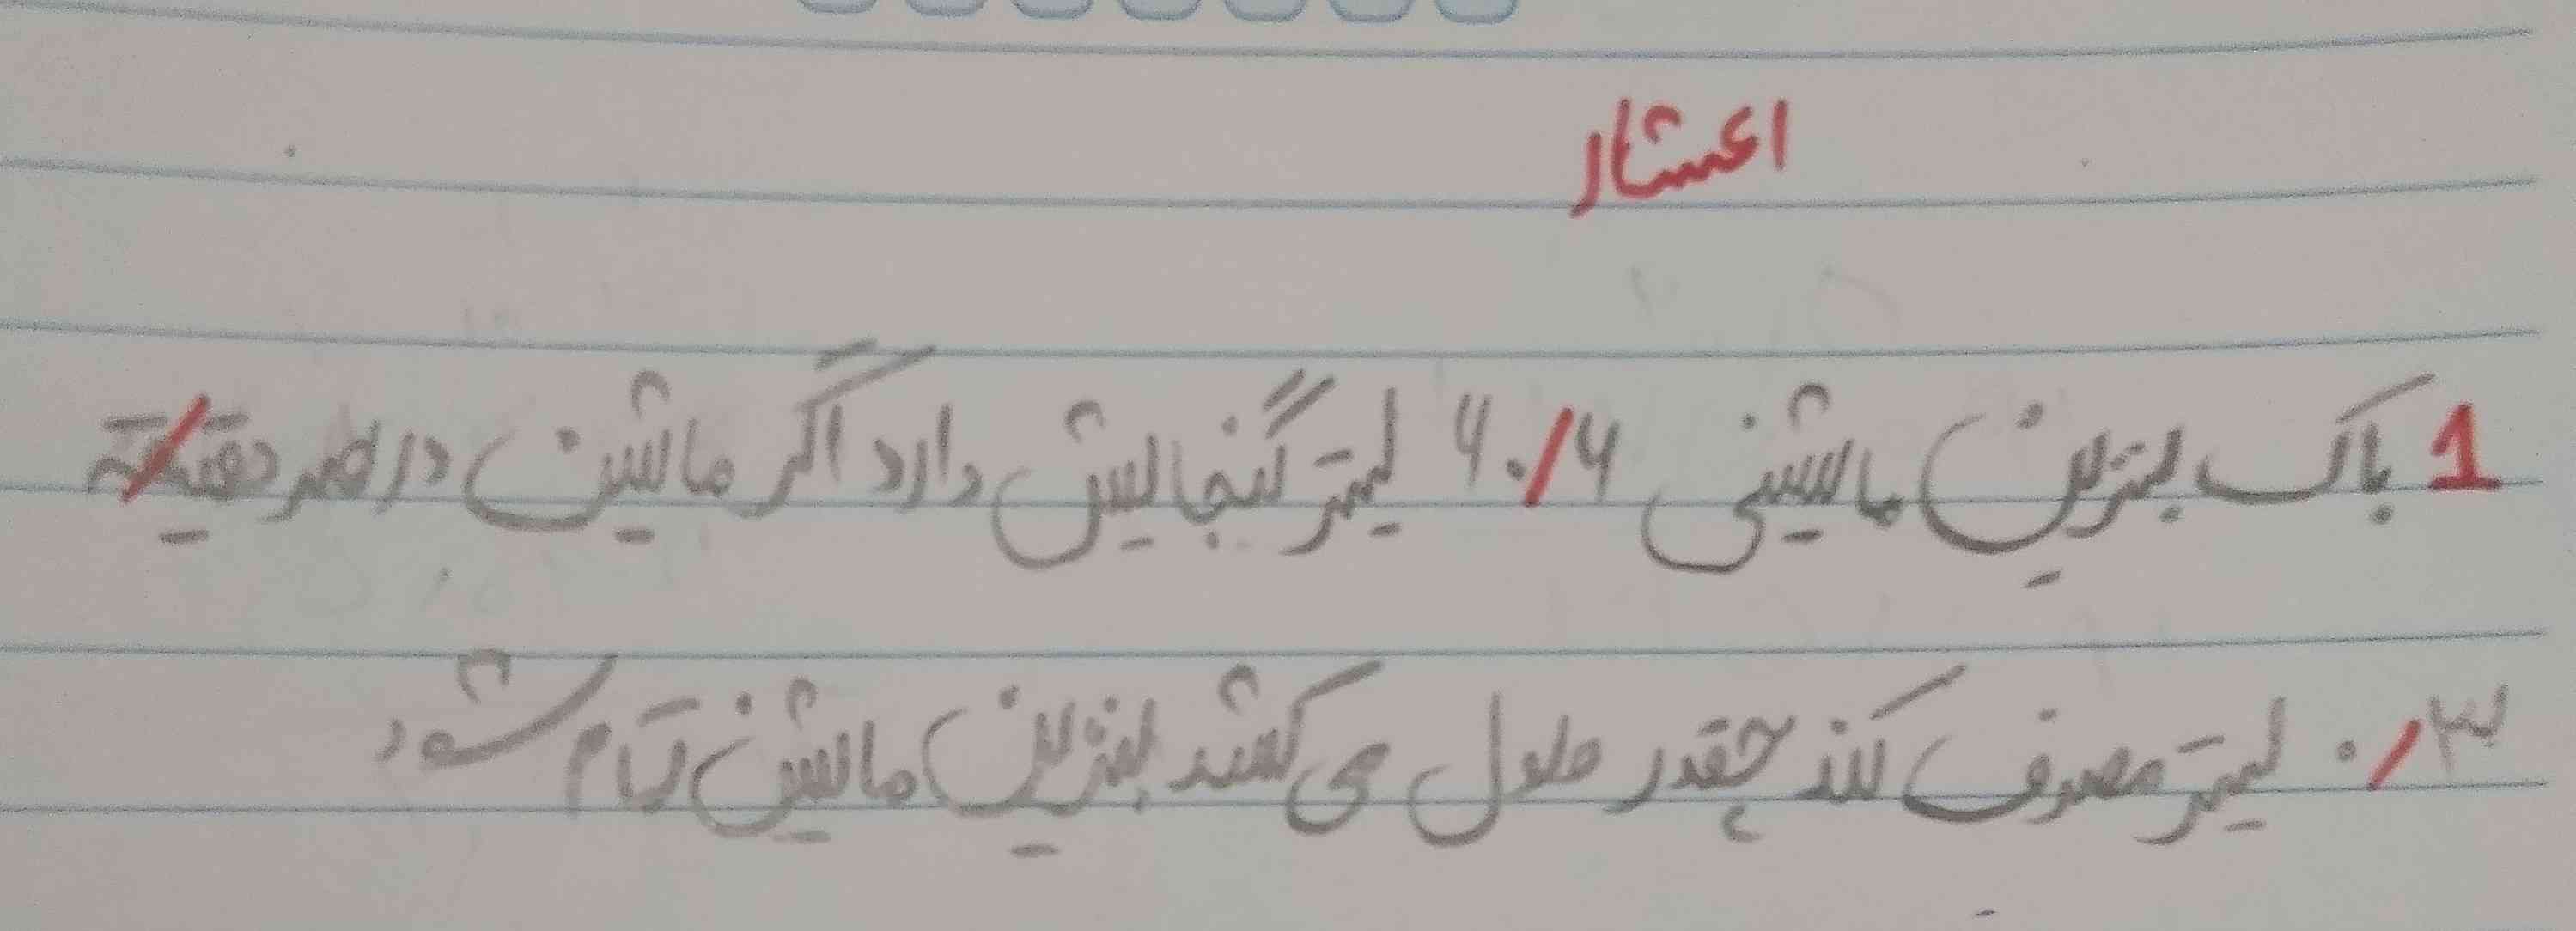 اعشار
1 باک بنزین ماشینی ۶۰/۶ لیتر گنجایش دارد اگر ماشین در هر دقیقه
۰/۳ لیتر مصرف کند چقدر طول می کشد بنزین ماشین تمام شود